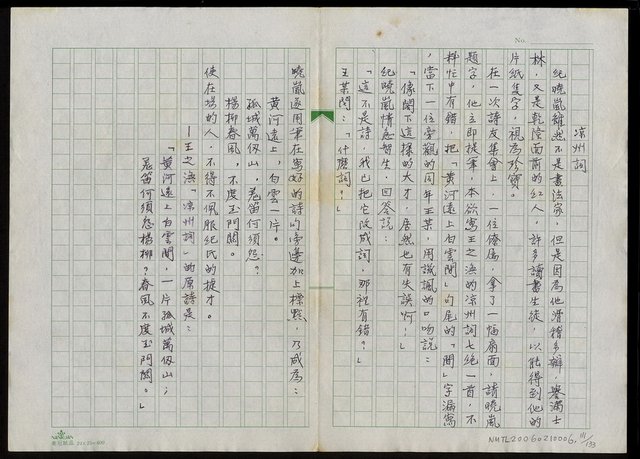 No.
涼州詞
紀曉嵐雖然不是書法家，但是因為他滑稽多辯，譽滿士
林，又是乾隆面前的紅人，許多讀書生徒，以能得到他的
片紙隻字，視為珍寶。
在一次詩友集會上，一位僚屬，拿了一幅扇面，請曉嵐
題字，他立即提筆，本欲寫王之渙的涼州詞七絕一首，不
料忙中有錯，把「黃河遠上白雲間」句尾的「間」字漏寫
，當下一位旁觀的同年王某，用譏諷的口吻說：
「像閣下這樣的大才，居然也有失誤啊！」
紀曉嵐情急智生，回答說：
「這不是詩，我已把它改成詞，那裡有錯？」
王某問：「什麼詞？」
曉嵐遂用筆在寫好的詩句旁邊加上標點，乃成為：
黃河遠上，白雲一片。
孤城萬仞山，羌笛何須怨？
楊柳春風，不度玉門關。
使在場的人，不得不佩服紀氏的捷才。
—王之渙「涼州詞」的原詩是：
「黃河遠上白雲間，一片孤城萬仞山；
羌笛何須怨楊柳？春風不度玉門關。」
24×25=600
NMTL20060210006, 111/133